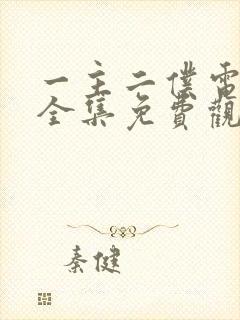 一主二僕電
全集免費觀
秦健